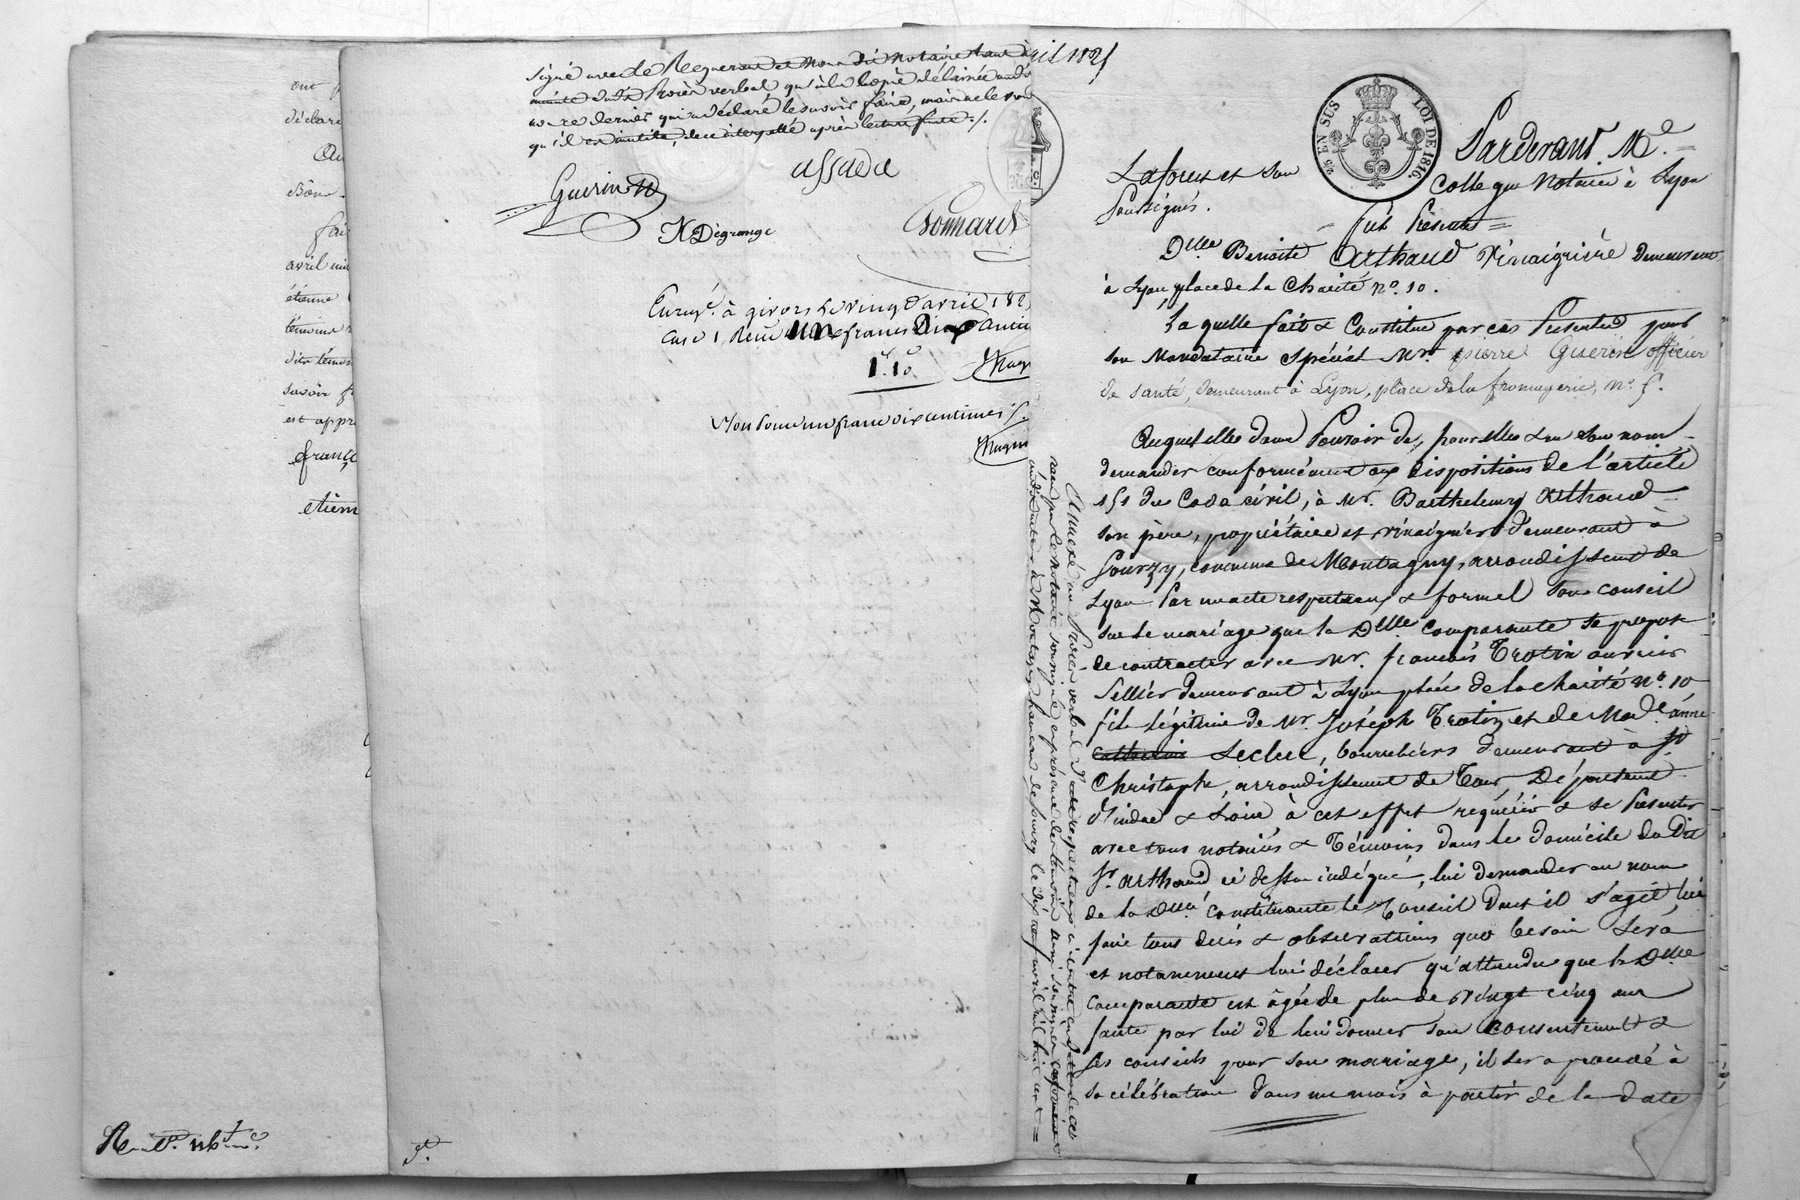 ont
déclare
avril mi
étienne
témoins
dits témoins
savoir f
est appr
étienn
signé avec le Requerant et nous dit Notaire tant à
minute du d. Procès verbal qu'à la copie délaissée aud.
qui a déclaré le savoir faire, mais ne le vou
qu'il est inutile, de ce interpellé après lecture faite ./.
Guerin
assada
N Dégrange
Bonnard
Enreg.é à givors le vingt d'avril 182
case 1, Reçu un franc Dix centim
1.f 10.c
Mon pour un franc dix centimes ./.
avril 1821
2/5 EN SUS
LOI DE 1816.
Pardevant M.e
Laforest et son
Collegue Notaires à Lyon
Soussignés.
= fut Présente =
D.lle Benoite Arthaud Vinaigrière Demeurant
à Lyon place de la Charité n.o 10.
La quelle fait & Constitue par ces Présentes pour
son Mandataire Spécial Mr. pierre Guerin officier
de santé, demeurant à Lyon, place de la fromagerie, n.o 5.
Auquel elle donne Pouvoir de, pour elle & en son nom
demander conformément aux dispositions de l'article
151 du Code civil, à Mr. Barthelemy Arthaud
son père, propriétaire et vinaigrier demeurant à
Sourzy, commune de Montagny, arrondissement de
Lyon Par un acte respectueux & formel son conseil
sur le mariage que la D.lle Comparante se propose
de contracter avec Mr. françois Trotin ouvrier
Sellier demeurant à Lyon place de la charité n.o 10
fils légitime de Mr. Joseph Trotin et de Mad.e anne
Catherine Leclerc, bourreliers demeurant à St
Christophe, arrondissement de Tours Département
d'indre & Loire à cet effet requérir & se Présenter
avec tous notaires & Témoins dans le domicile du Dit
Sr. Arthaud ci dessus indiqué, lui demander au nom
de la D.lle Constituante le Conseil dont il s'agit lui
faire tous dires & observations que besoin sera
et notamment lui déclarer qu'attendu que la D.lle
Comparante est âgée de plus de vingt cinq ans
faute par lui de lui donner son consentement &
ses conseils pour son mariage, il sera procédé à
sa célébration dans un mois à partir de la date
Annexé au Procès verbal d'acte respectueux
par le notaire soussigné en présence des témoins aussi soussignés
à Montagny hameau de Sourzy le dix neuf avril mil huit cent =